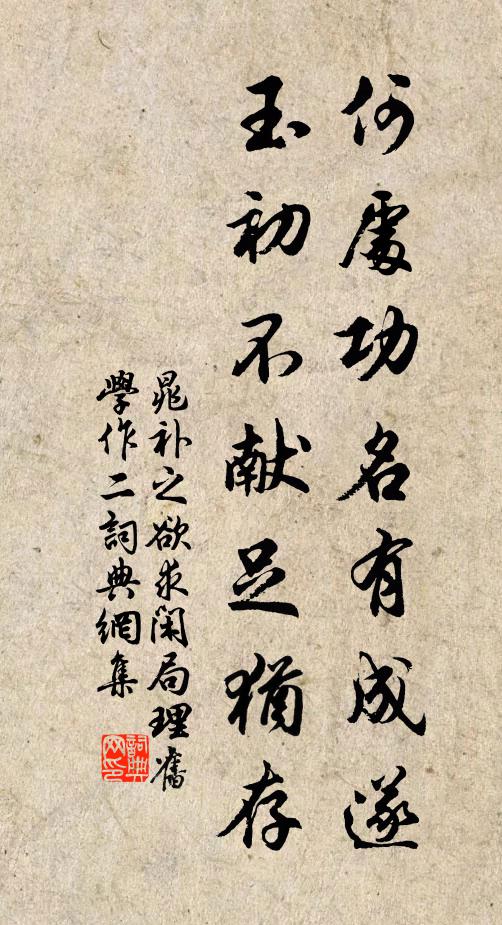 何處功名有成遂
玉初不献足猶存
晁补之欲求閑局理舊
學作二詞典網集
詞典網印